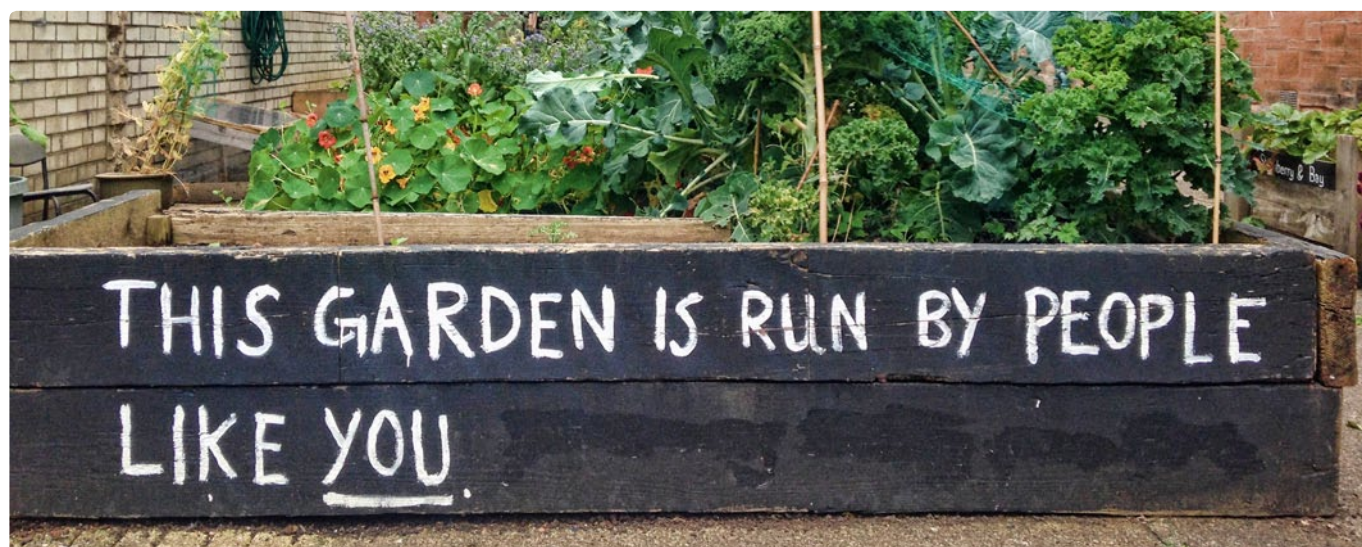 THIS GARDEN IS RUN BY PEOPLE
LIKE YOU.
berry & Bay